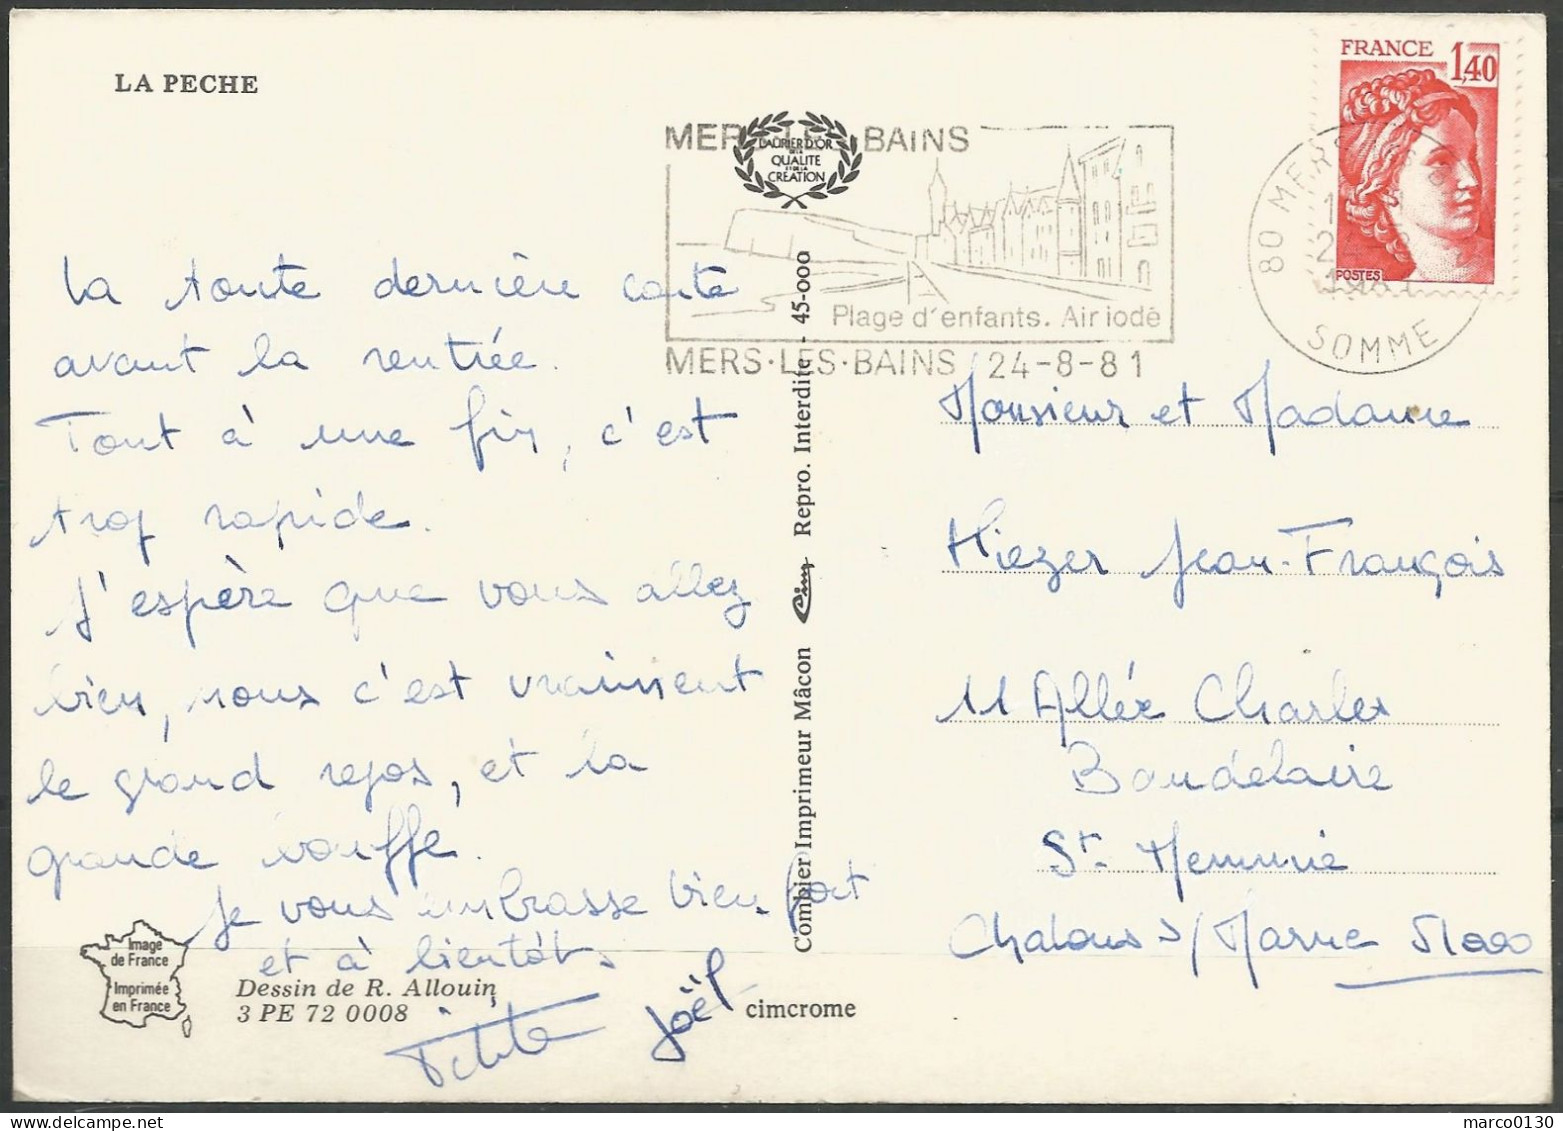 LA PECHE
La toute dernière carte
avant la rentrée.
Tout à une fin, c'est
trop rapide.
J'espère que vous allez
bien, nous c'est vraiment
le grand repos, et la
grande bouffe.
Je vous embrasse bien fort
et à bientôt.
Joël
Image
de France
Imprimée
en France
Dessin de R. Allouin
3 PE 72 0008
cimcrome
Combier Imprimeur Mâcon Cim Repro. Interdite - 45-000
LAURIER D'OR
DE LA
QUALITE
ET DE LA
CREATION
MERS-LES-BAINS
Plage d'enfants. Air iodé
MERS-LES-BAINS 24-8-81
FRANCE 1,40
POSTES
80 MERS
SOMME
Monsieur et Madame
Miezer Jean-François
11 Allée Charles
Baudelaire
St Memmie
Chalons s/Marne 51000
marco0130